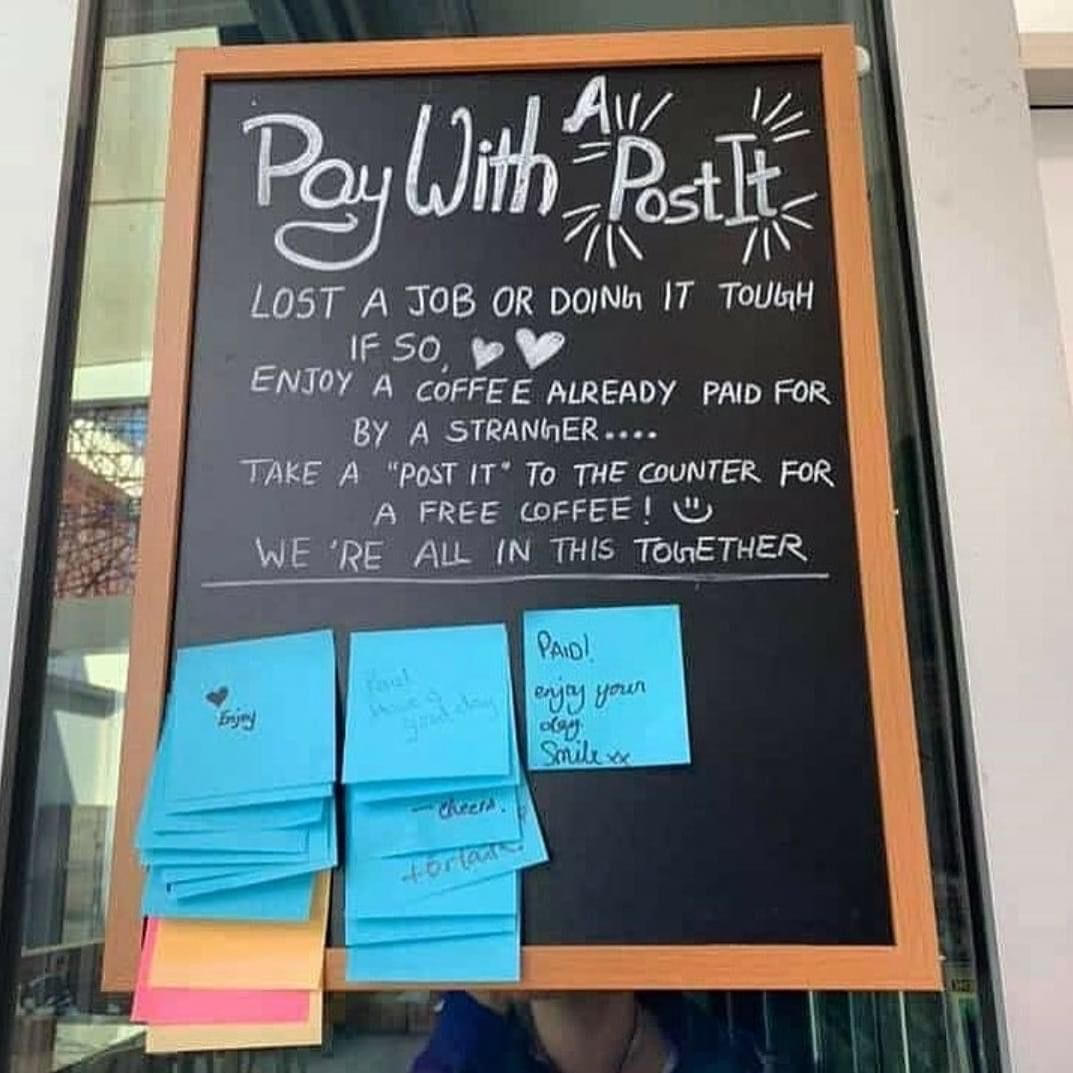 Pay With A Post It
LOST A JOB OR DOING IT TOUGH
IF SO,
ENJOY A COFFEE ALREADY PAID FOR
BY A STRANGER....
TAKE A "POST IT" TO THE COUNTER FOR
A FREE COFFEE!
WE'RE ALL IN THIS TOGETHER
Enjoy
Paid!
have a
good day
- cheers.
PAID!
enjoy your
day.
Smile xx